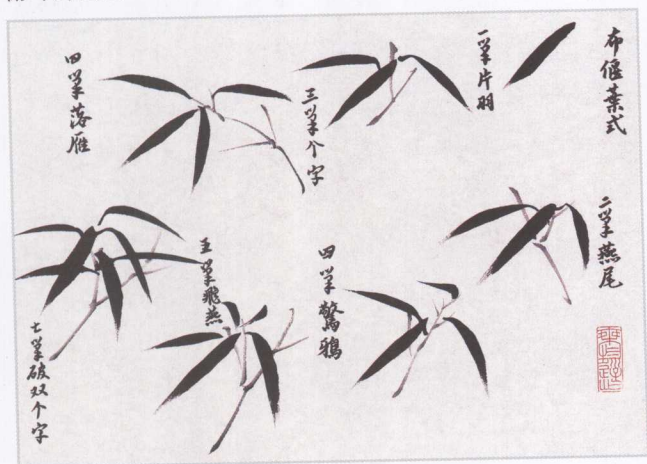 布偃葉式
一筆片羽
二筆燕尾
三筆个字
四筆落雁
四筆驚鴉
五筆飛燕
七筆破双个字